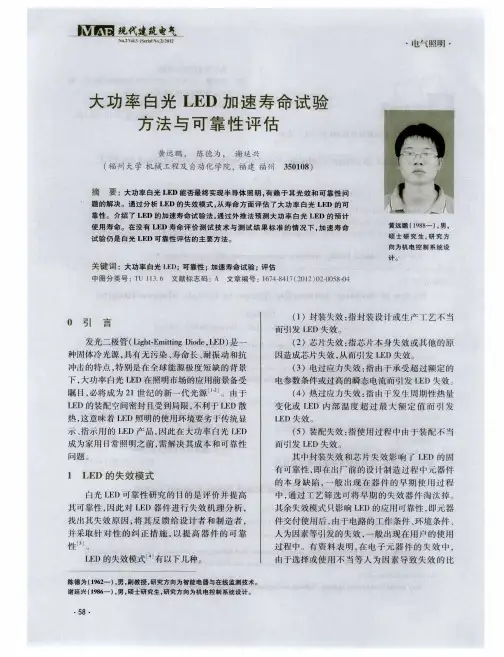 MAE 现代建筑电气
No.2 Vol.3 (Serial No.2) 2012
·电气照明·
大功率白光 LED 加速寿命试验
方法与可靠性评估
黄远鹏， 陈德为， 谢延兴
(福州大学 机械工程及自动化学院, 福建 福州 350108)
摘 要：大功率白光 LED 能否最终实现半导体照明,有赖于其光效和可靠性问
题的解决。通过分析 LED 的失效模式,从寿命方面评估了大功率白光 LED 的可
靠性。介绍了 LED 的加速寿命试验法,通过外推法预测大功率白光 LED 的预计
使用寿命。在没有 LED 寿命评价测试技术与测试结果标准的情况下,加速寿命
试验仍是白光 LED 可靠性评估的主要方法。
关键词：大功率白光 LED; 可靠性; 加速寿命试验; 评估
中图分类号: TU 113.6 文献标志码: A 文章编号: 1674-8417(2012)02-0058-04
黄远鹏(1988—),男,
硕士研究生,研究方
向为机电控制系统设
计。
0 引 言
发光二极管(Light-Emitting Diode, LED)是一
种固体冷光源,具有无污染、寿命长、耐振动和抗
冲击的特点,特别是在全球能源极度短缺的背景
下,大功率白光 LED 在照明市场的应用前景备受
瞩目,必将成为 21 世纪的新一代光源[1-2]。由于
LED 的装配空间密封且受到局限,不利于 LED 散
热,这意味着 LED 照明的使用环境要劣于传统显
示、指示用的 LED 产品,因此在大功率白光 LED
成为家用日常照明之前,需解决其成本和可靠性
问题。
1 LED 的失效模式
白光 LED 可靠性研究的目的是评价并提高
其可靠性,因此对 LED 器件进行失效机理分析,
找出其失效原因,将其反馈给设计者和制造者,
并采取针对性的纠正措施,以提高器件的可靠
性[3]。
LED 的失效模式[4]有以下几种。
(1) 封装失效:指封装设计或生产工艺不当
而引发 LED 失效。
(2) 芯片失效:指芯片本身失效或其他的原
因造成芯片失效,从而引发 LED 失效。
(3) 电过应力失效:指由于承受超过额定的
电参数条件或过高的瞬态电流而引发 LED 失效。
(4) 热过应力失效:指由于发生周期性热量
变化或 LED 内部温度超过最大额定值而引发
LED 失效。
(5) 装配失效:指使用过程中由于装配不当
而引发 LED 失效。
其中封装失效和芯片失效影响了 LED 的固
有可靠性,即在出厂前的设计制造过程中元器件
的本身缺陷,一般出现在器件的早期使用过程
中,通过工艺筛选可将早期的失效器件淘汰掉。
其余失效模式只影响 LED 的应用可靠性,即元器
件交付使用后,由于电路的工作条件、环境条件、
人为因素等引发的失效,一般出现在用户的使用
过程中。有资料表明,在电子元器件的失效中,
由于选择或使用不当等人为因素导致失效的比
陈德为(1962—),男,副教授,研究方向为智能电器与在线监测技术。
谢延兴(1986—),男,硕士研究生,研究方向为机电控制系统设计。
·58·